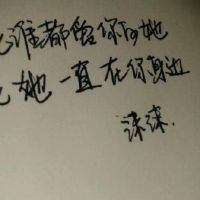 谁都会你的她
她一直在你身边
沫沫.